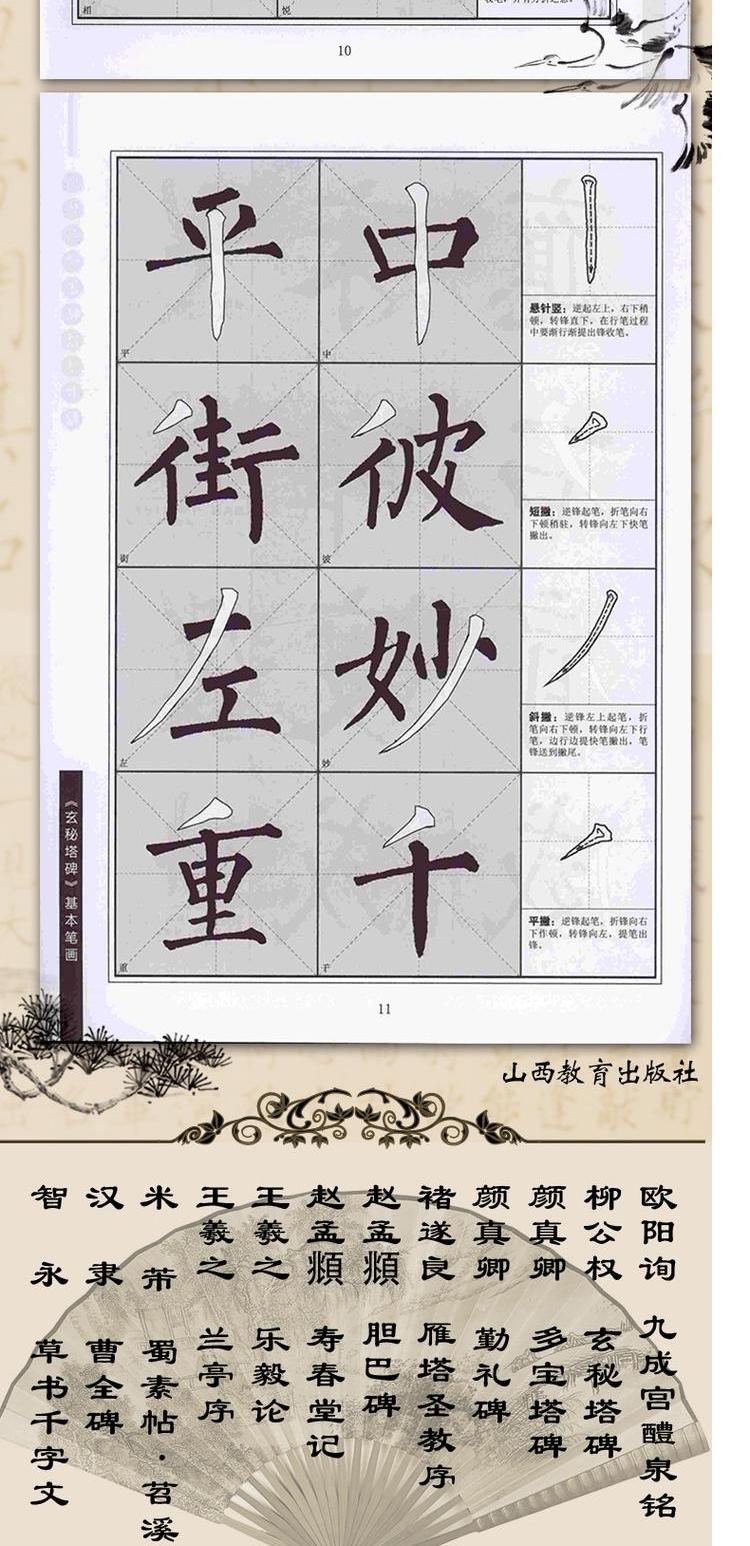 相
悦
10
平
中
悬针竖：逆起左上，右下稍
顿，转锋直下，在行笔过程
中要渐行渐提出锋收笔。
平
中
街
彼
短撇：逆锋起笔，折笔向右
下顿稍驻，转锋向左下快笔
撇出。
街
彼
左
妙
斜撇：逆锋左上起笔，折
笔向右下顿，转锋向左下行
笔，边行边提快笔撇出，笔
锋送到撇尾。
左
妙
重
千
平撇：逆锋起笔，折锋向右
下作顿，转锋向左，提笔出
锋。
重
千
《玄秘塔碑》基本笔画
11
山西教育出版社
欧阳询 九成宫醴泉铭
柳公权 玄秘塔碑
颜真卿 多宝塔碑
颜真卿 勤礼碑
褚遂良 雁塔圣教序
赵孟頫 胆巴碑
赵孟頫 寿春堂记
王羲之 乐毅论
王羲之 兰亭序
米芾 蜀素帖·苕溪
汉隶 曹全碑
智永 草书千字文